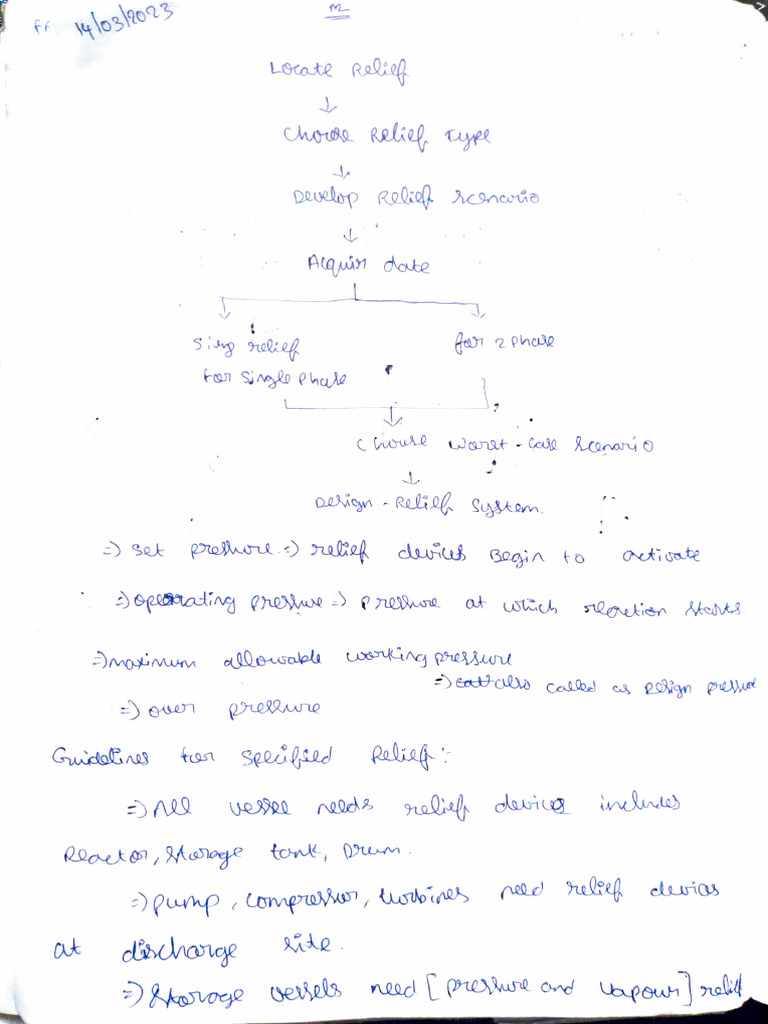 14/03/2023
Locate Relief
↓
Choose Relief Type
↓
Develop Relief Scenario
↓
Acquir date
Sing relief for 2 phase
for single phase
↓
Chouse worst-case scenario
↓
Design-Relief System.
=) set pressure =) relief devices Begin to activate
=) operating pressure =) pressure at which reaction starts
=) maximum allowable working pressure
=) also called as Design pressure
=) over pressure
Guidelines for specified Relief:
=) All vessel needs relief device includes
Reactor, storage tank, Drum.
=) pump, compressor, turbines need relief devices
at discharge site.
=) storage vessels need [pressure and vapour] relief